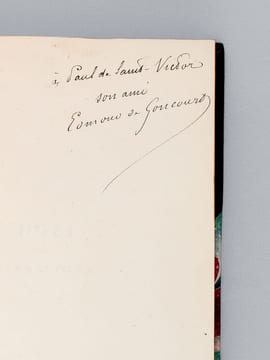 à Paul de Saint-Victor
son ami
Edmond de Goncourt